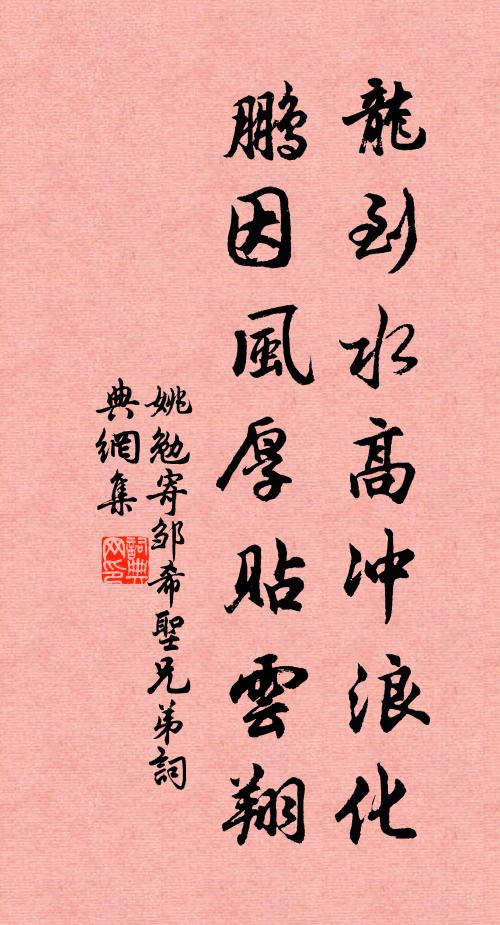 龍到水高冲浪化
鵬因風厚貼雲翔
姚勉寄邹希聖兄弟詞
典網集
詞典
网印